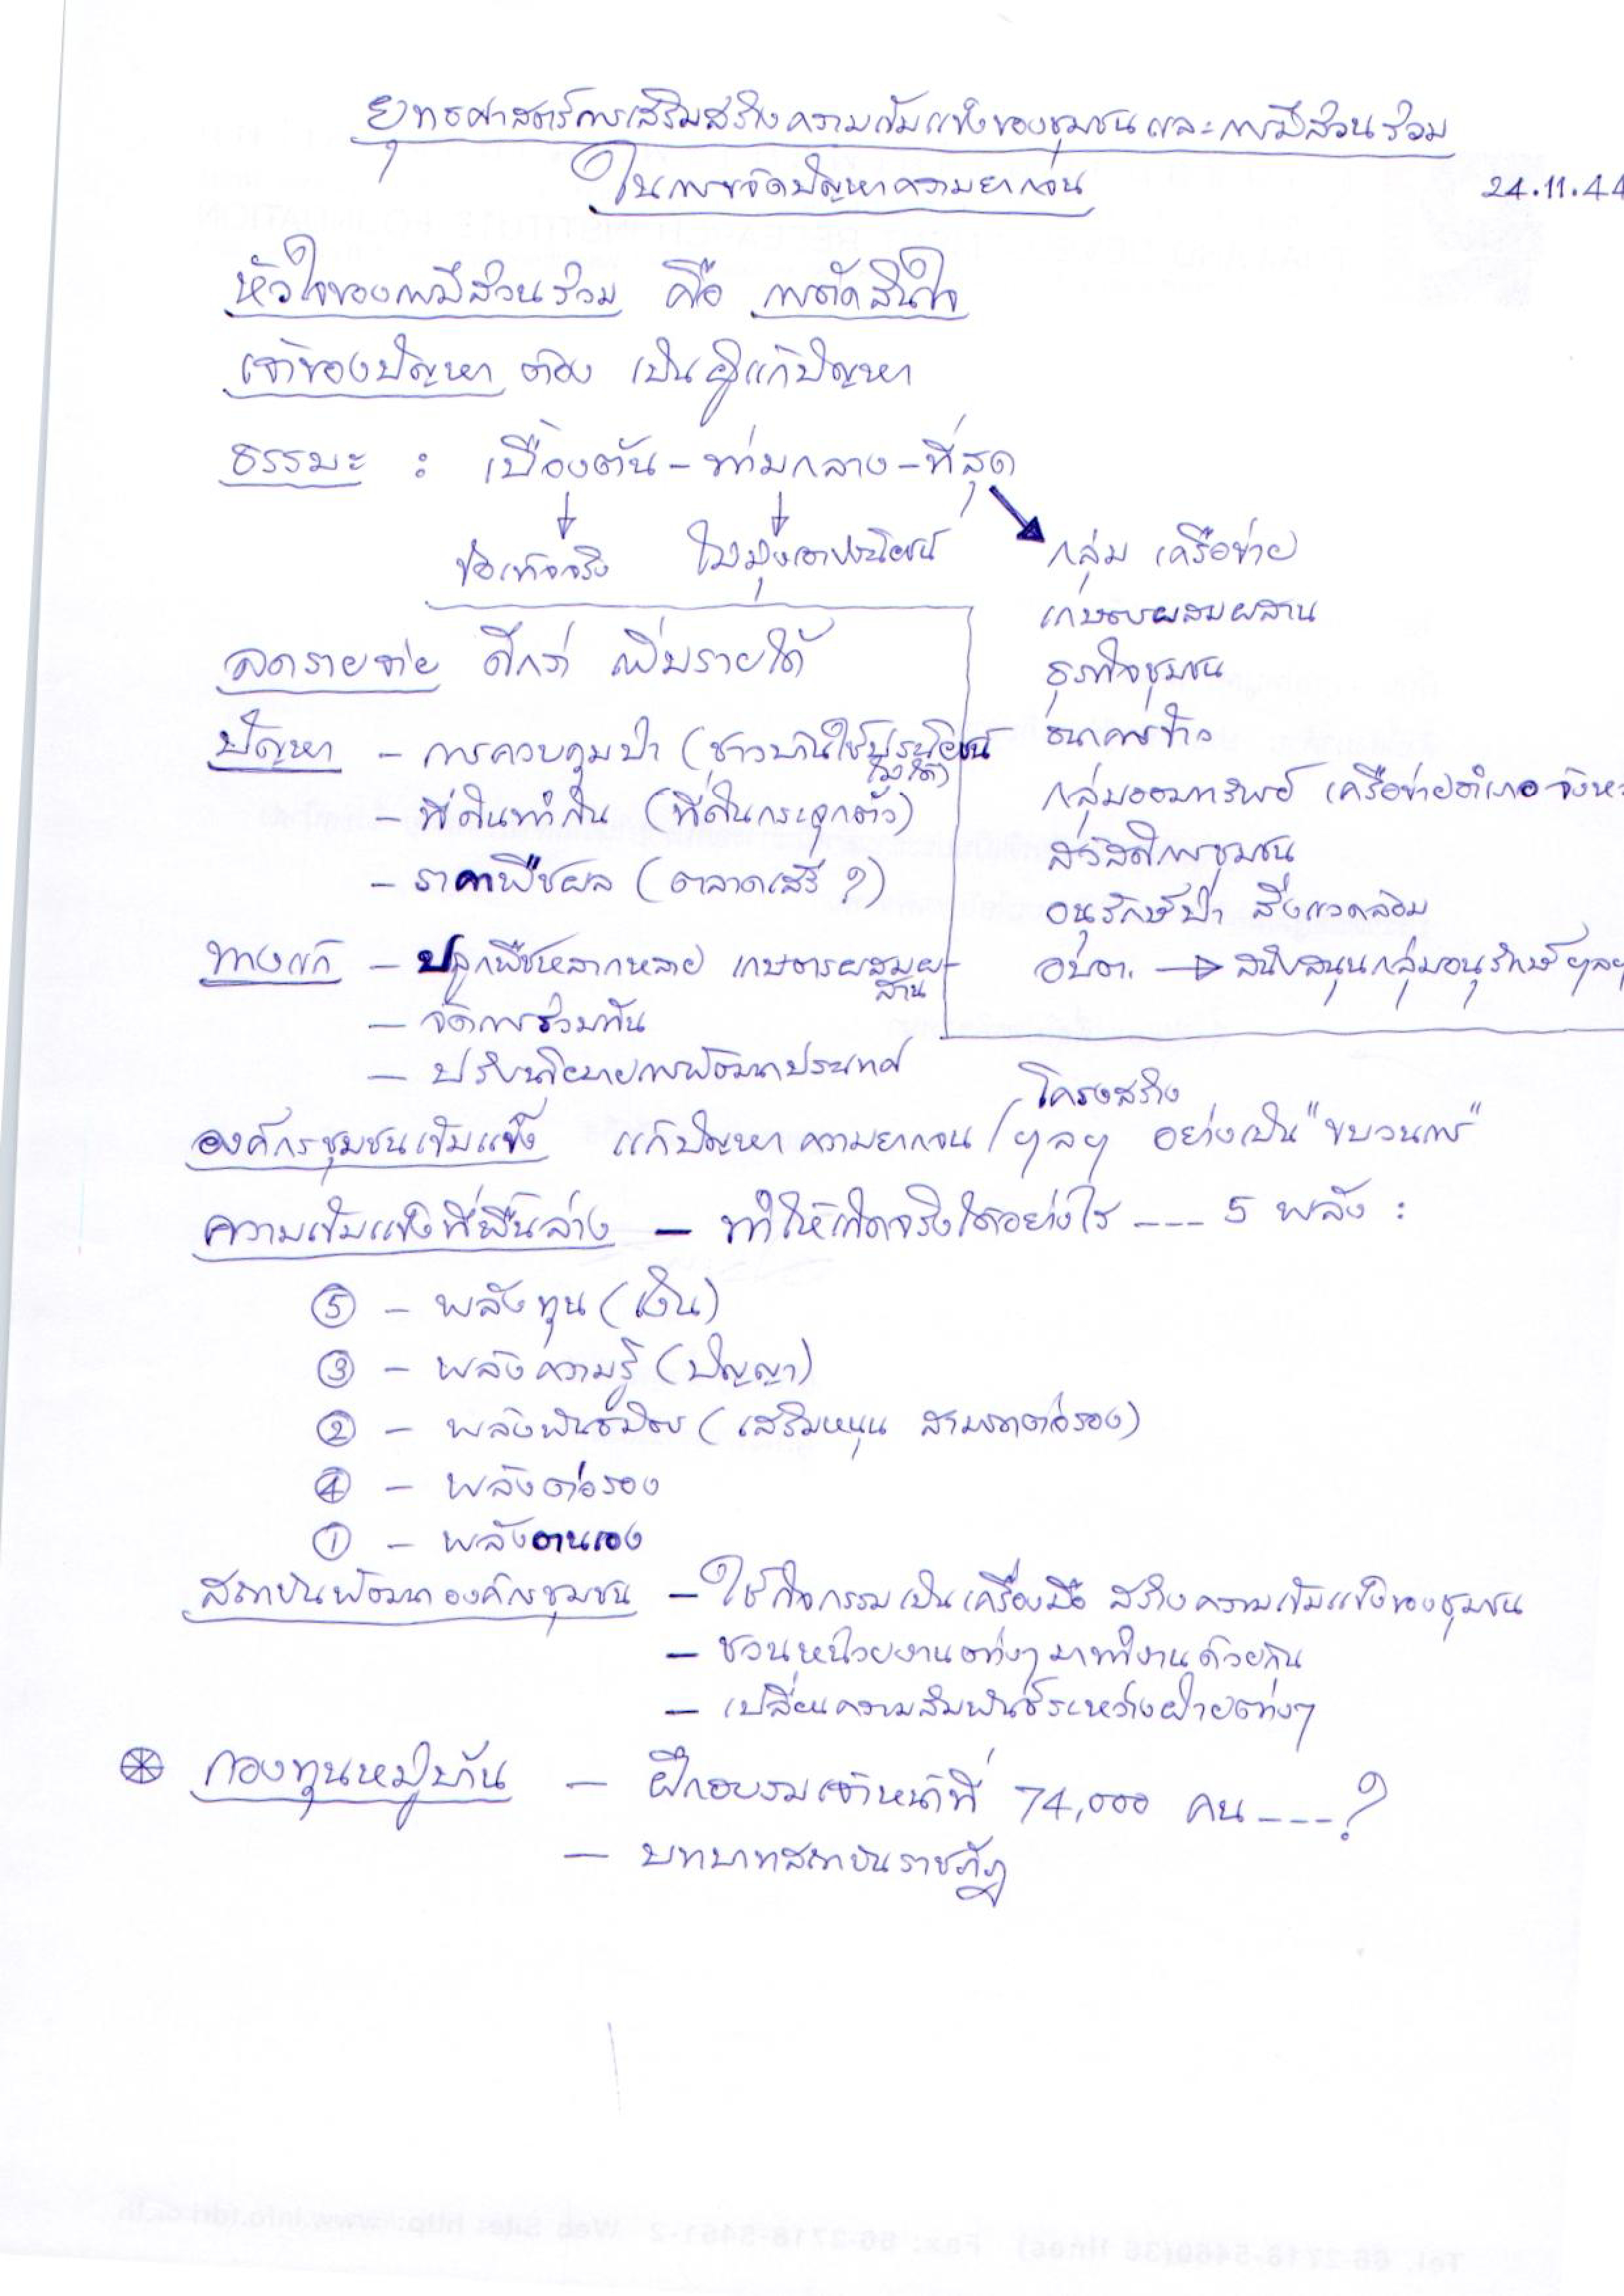 ยุทธศาสตร์การเสริมสร้างความเข้มแข็งของชุมชนและการมีส่วนร่วม
ในการขจัดปัญหาความยากจน
24.11.44
หัวใจของการมีส่วนร่วม คือ การตัดสินใจ
เจ้าของปัญหา ต้อง เป็นผู้แก้ปัญหา
ธรรมะ : เบื้องต้น - ท่ามกลาง - ที่สุด
ข้อเท็จจริง ไม่มุ่งเอาประโยชน์
ลดรายจ่าย ดีกว่า เพิ่มรายได้
ปัญหา - การควบคุมป่า (ชาวบ้านใช้ประโยชน์
ไม่ได้)
- ที่ดินทำกิน (ที่ดินกระจุกตัว)
- ราคาพืชผล (ตลาดเสรี ?)
ทางแก้ - ปลูกพืชหลากหลาย เกษตรผสมผ-
สาน
- จัดการร่วมกัน
- ปรับนโยบายการพัฒนาประเทศ
กลุ่ม เครือข่าย
เกษตรผสมผสาน
ธุรกิจชุมชน
ธนาคารข้าว
กลุ่มออมทรัพย์ เครือข่ายอำเภอ จังหว
สวัสดิการชุมชน
อนุรักษ์ป่า สิ่งแวดล้อม
อบต. → สนับสนุนกลุ่มอนุรักษ์ ฯลฯ
โครงสร้าง
องค์กรชุมชนเข้มแข็ง แก้ปัญหาความยากจน / ฯลฯ อย่างเป็น "ขบวนการ"
ความเข้มแข็งที่พื้นล่าง - ทำให้เกิดจริงได้อย่างไร --- 5 พลัง :
⑤ - พลังทุน (เงิน)
③ - พลังความรู้ (ปัญญา)
② - พลังพันธมิตร (เสริมหนุน สามารถต่อรอง)
④ - พลังต่อรอง
① - พลังตนเอง
สถาบันพัฒนาองค์กรชุมชน - ใช้กิจกรรมเป็นเครื่องมือ สร้างความเข้มแข็งของชุมชน
- ชวนหน่วยงานต่างๆ มาทำงานด้วยกัน
- เปลี่ยนความสัมพันธ์ระหว่างฝ่ายต่างๆ
กองทุนหมู่บ้าน - ฝึกอบรมเจ้าหน้าที่ 74,000 คน ---?
- บทบาทสถาบันราชภัฏ